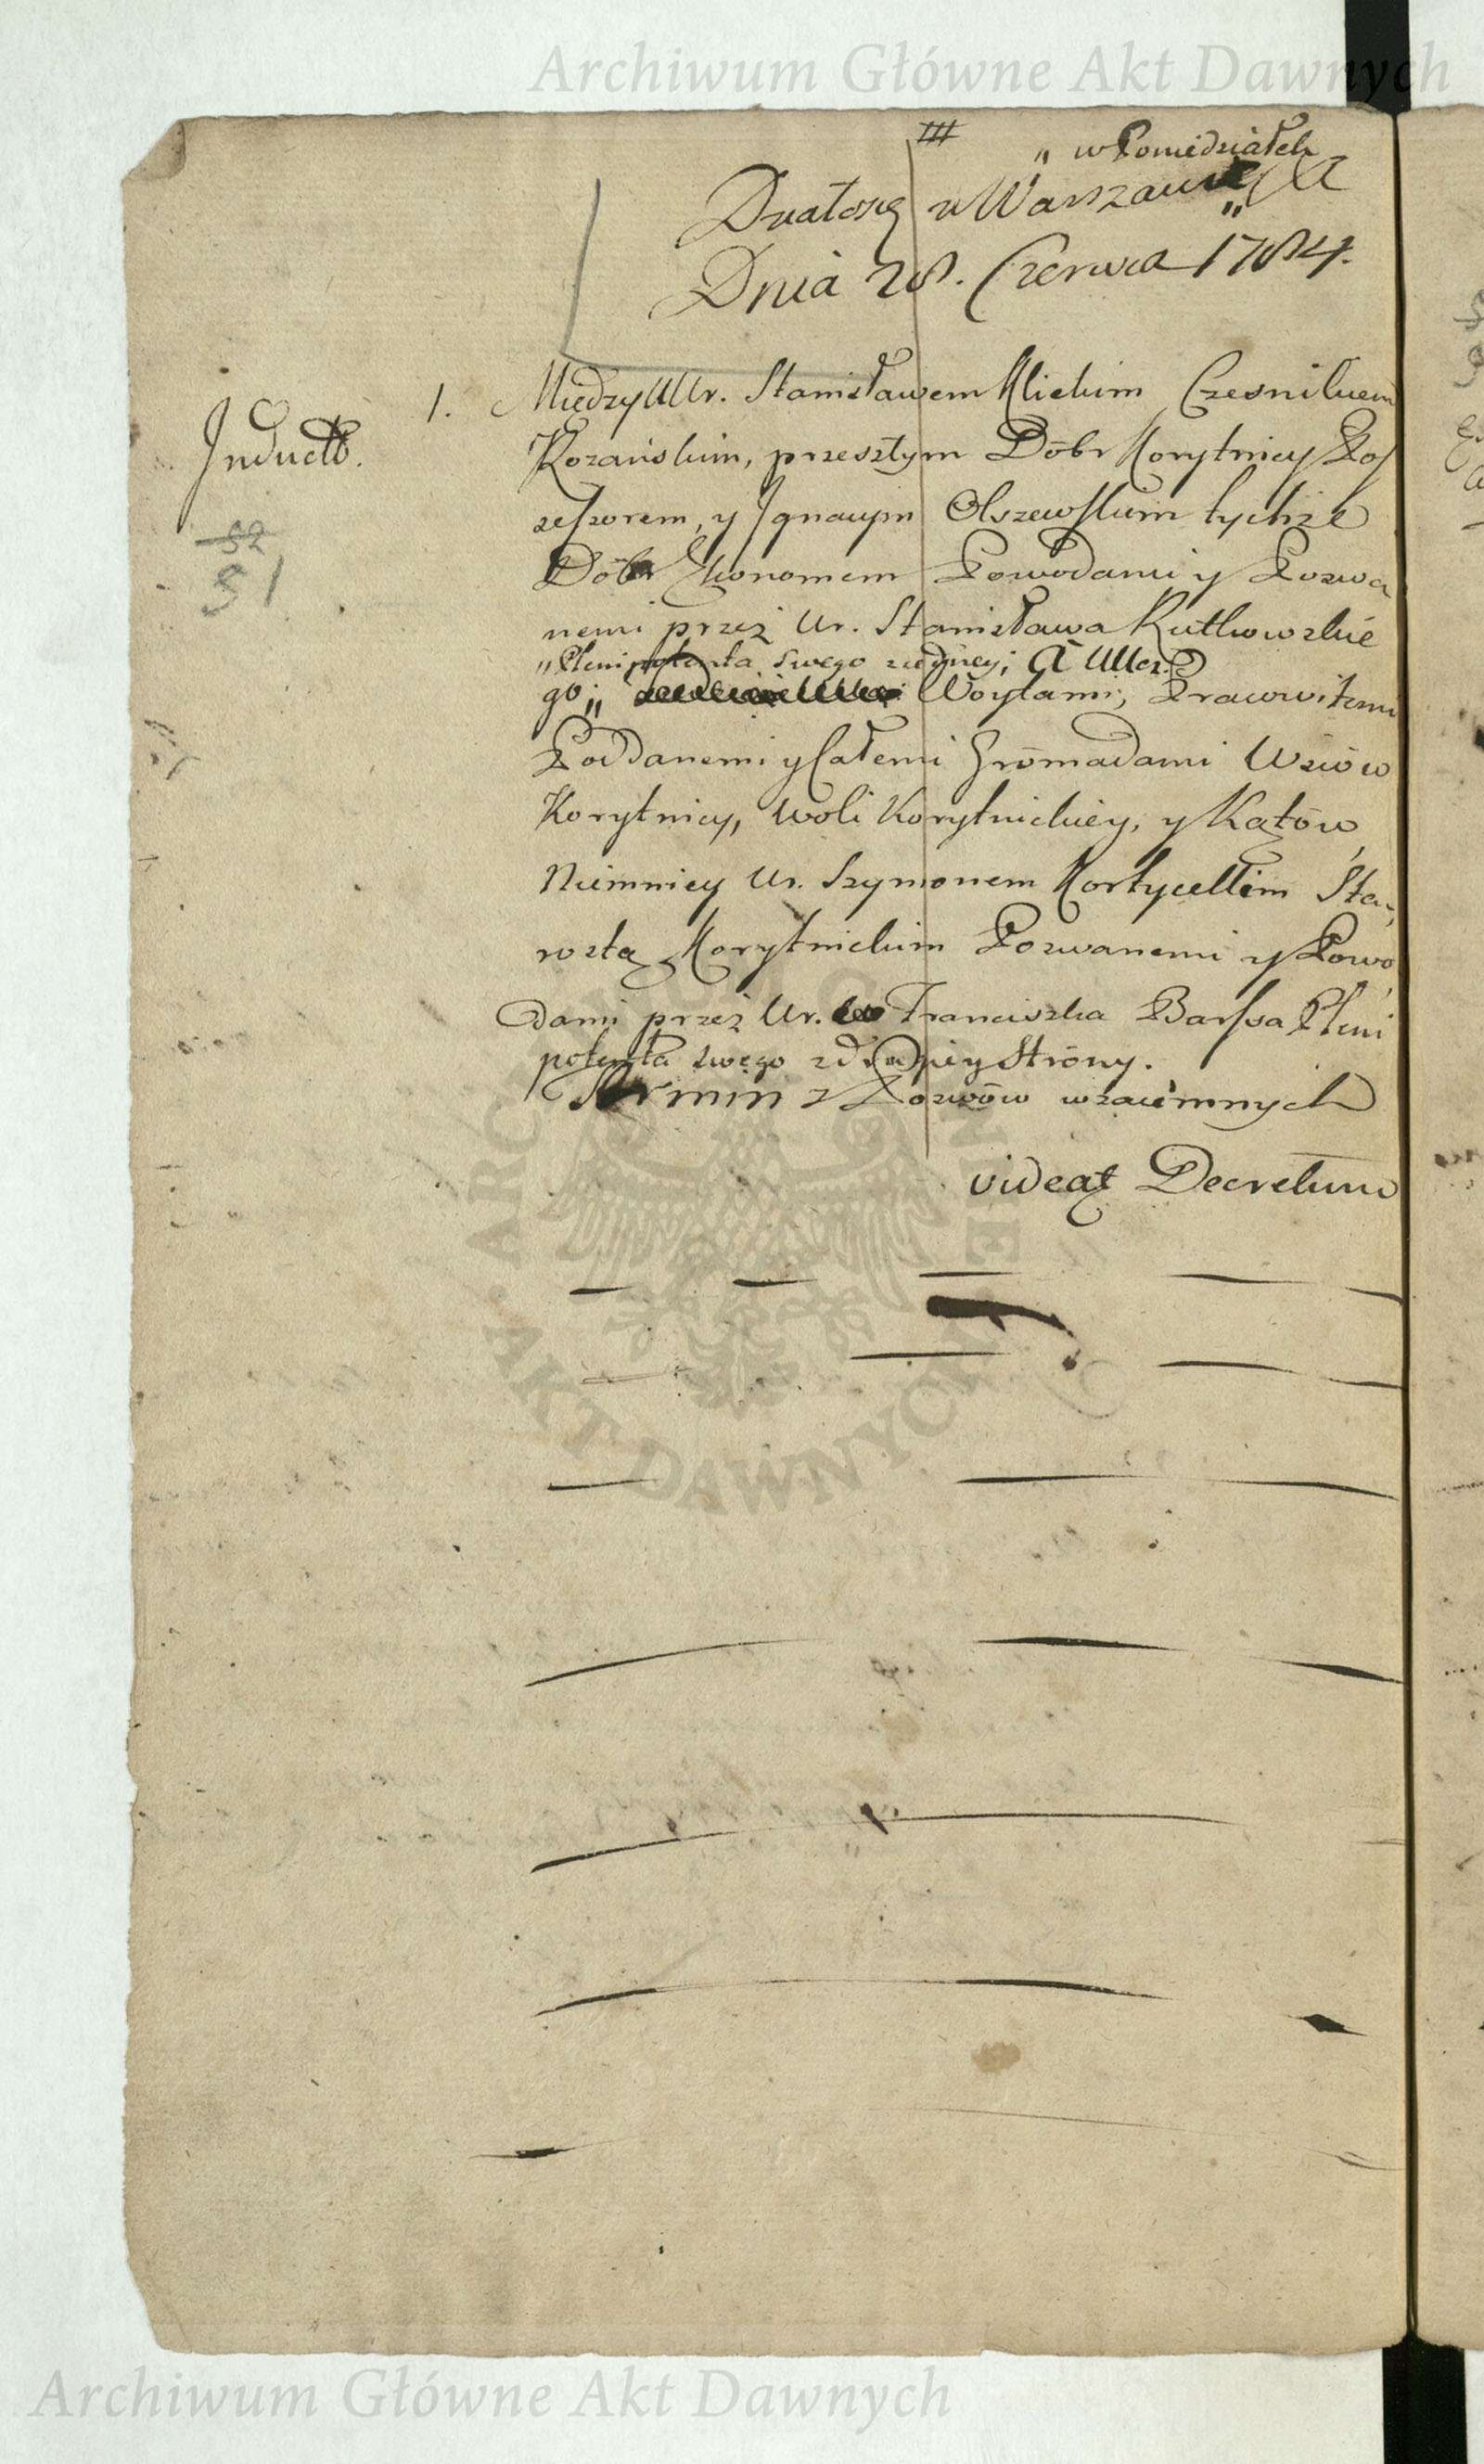 Archiwum Główne Akt Dawnych
III
„ w Poniedziałek
Działo się w Warszawie „
Dnia 28. Czerwca 1784.
Inducto.
52
51
1. Między UUr. Stanisławem Klickim Czesnikiem
Rozańskim, przeszłym Dóbr Korytnicy Pos
sessorem, y Ignacym Olszewskim tychże
Dóbr Ekonomem Powodami y Pozwa
nemi przez Ur. Stanisława Rutkowskie
„Plenipotenta swego z iedney; A
go; „ Woytami, Prawowitemi
Poddanemi y Całemi Gromadami Wsiów
Korytnicy, Woli Korytnickiey, y Kątów
Niemniey Ur. Szymonem Kortycellim Sta,
rostą Korytnickim Pozwanemi y Powo
dami przez Ur. Franciszka Barssa Pleni
potenta swego z drugiey Strony.
Termin z Pozwów wzaiemnych
videat Decretum
ARC
AKT DAWNYCH
Archiwum Główne Akt Dawnych